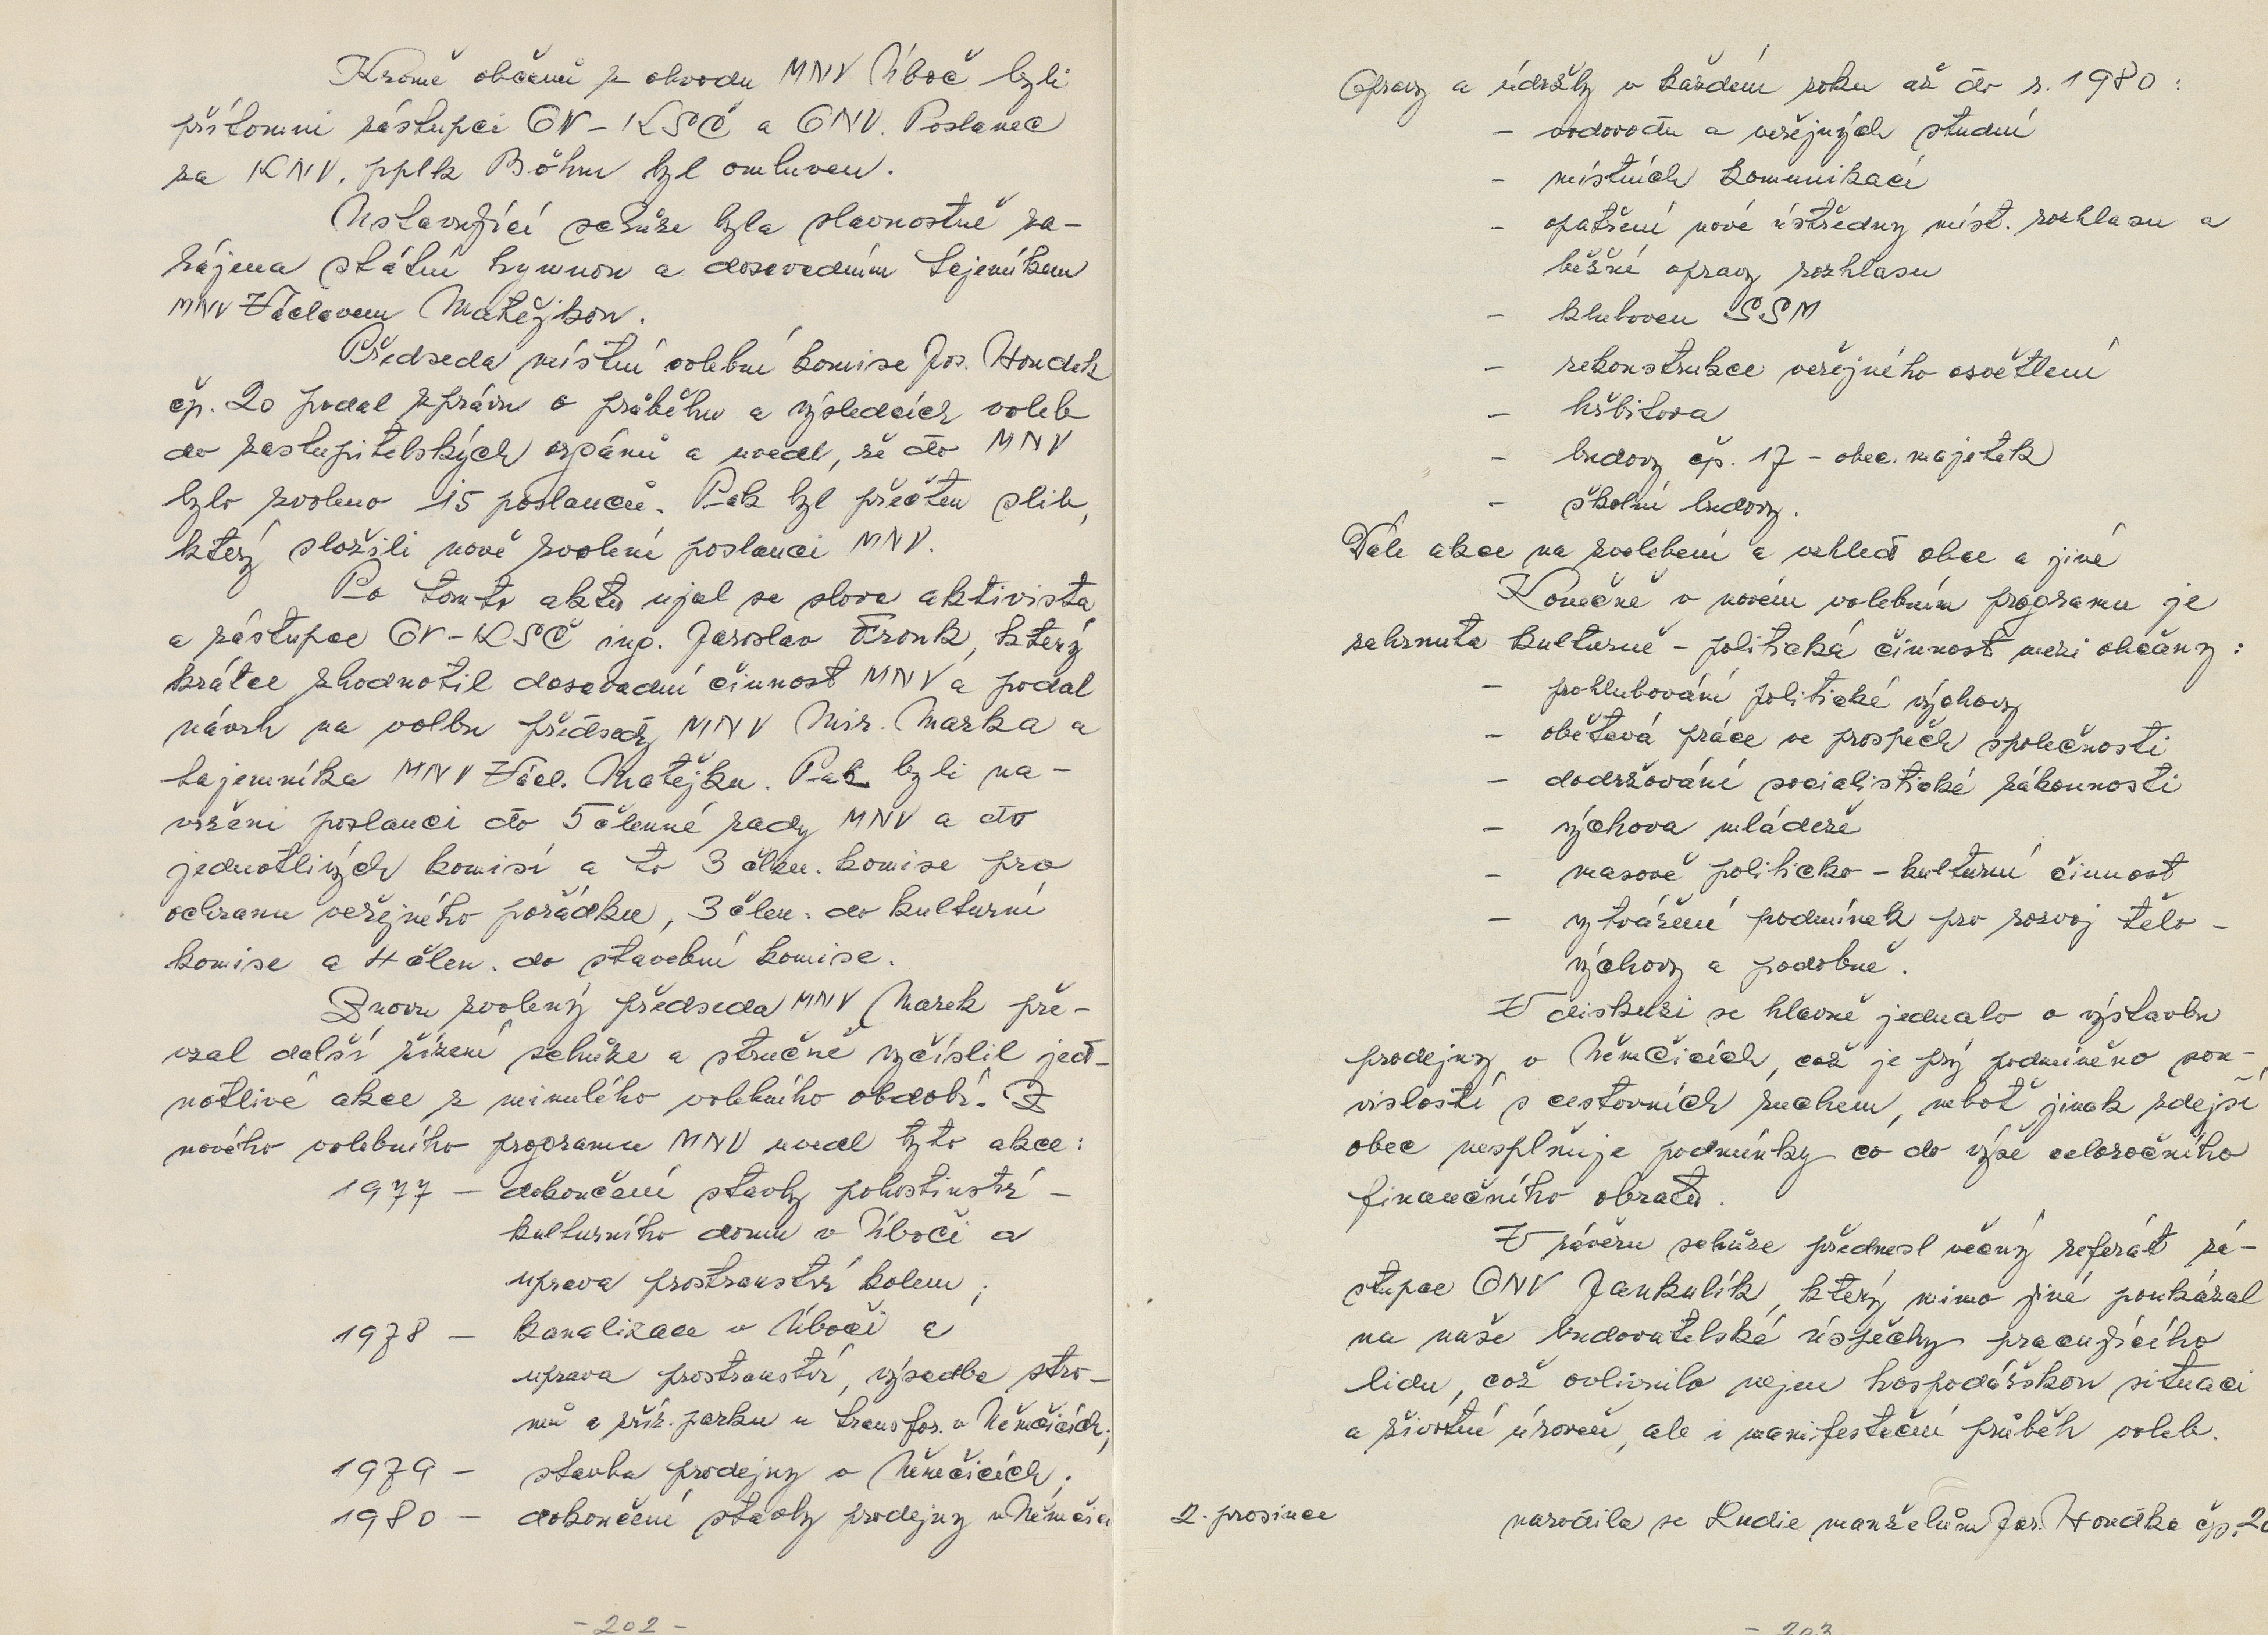 Kromě občanů z obvodu MNV Úboč byli
přítomni zástupci OV-KSČ a ONV. Poslanec
za KNV, pplk Böhm byl omluven.
Ustavující schůze byla slavnostně za-
hájena státní hymnou a dosavadním tajemníkem
MNV Václavem Matějkou.
Předseda místní volební komise Jos. Houdek
čp. 20 podal zprávu o průběhu a výsledcích voleb
do zastupitelských orgánů a uvedl, že do MNV
bylo zvoleno 15 poslanců. Pak byl přečten slib,
který složili nově zvolení poslanci MNV.
Po tomto aktu ujal se slova aktivista
a zástupce OV-KSČ ing. Jaroslav Fronk, který
krátce zhodnotil dosavadní činnost MNV a podal
návrh na volbu předsedy MNV Mir. Marka a
tajemníka MNV Václ. Matějku. Pak byli na-
vrženi poslanci do 5členné rady MNV a do
jednotlivých komisí a to 3 člen. komise pro
ochranu veřejného pořádku, 3 člen. do kulturní
komise a 4 člen. do stavební komise.
Znovu zvolený předseda MNV Marek pře-
vzal další řízení schůze a stručně vyčíslil jed-
notlivé akce z minulého volebního období. Z
nového volebního programu MNV uvedl tyto akce:
1977 - dokončení stavby pohostinství -
kulturního domu v Úboči a
uprava prostranství kolem;
1978 - kanalizace v Úboči a
uprava prostranství, výsadba stro-
mů a zříz. parku u transfor. v Němčicích;
1979 - stavba prodejny v Němčicích;
1980 - dokončení stavby prodejny v Němčic
- 202 -
Opravy a údržby v každém roku až do r. 1980:
- vodovodu a veřejných studní
- místních komunikací
- opatření nové ústředny míst. rozhlasu a
běžné opravy rozhlasu
- kluboven SSM
- rekonstrukce veřejného osvětlení
- hřbitova
- budovy čp. 17 - obec. majetek
- školní budovy.
Dále akce na zvelebení a vzhled obce a jiné
Konečně v novém volebním programu je
zahrnuta kulturně - politická činnost mezi občany:
- prohlubování politické výchovy
- obětavá práce ve prospěch společnosti
- dodržování socialistické zákonnosti
- výchova mládeže
- masově politicko - kulturní činnost
- vytváření podmínek pro rozvoj tělo-
výchovy a podobně.
V diskuzi se hlavně jednalo o výstavbu
prodejny v Němčicích, což je prý podmíněno sou-
vislostí s cestovních ruchem, neboť jinak zdejší
obec nesplňuje podmínky co do výše celoročního
finančního obratu.
V závěru schůze přednesl věcný referát zá-
stupce ONV Jankulík, který mimo jiné poukázal
na naše budovatelské úspěchy pracujícího
lidu, což ovlivnilo nejen hospodářskou situaci
a životní úroveň, ale i manifestační průběh voleb.
2. prosince narodila se Ludie manželům Jos. Houdka čp. 20
- 203